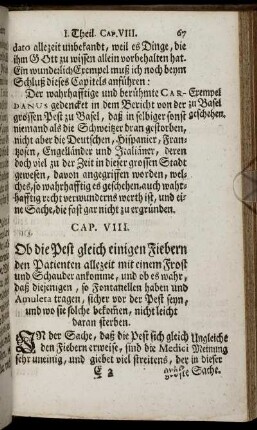 I. Theil. CAP. VIII. 67
dato allezeit unbekandt, weil es Dinge, die
ihm GOtt zu wissen allein vorbehalten hat.
Ein wunderlich Exempel muß ich noch beym
Schluß dieses Capitels anführen:
Der wahrhafftige und berühmte CAR- Exempel
DANUS gedencket in dem Bericht von der zu Basel
grossen Pest zu Basel, daß in selbiger sonst geschehen.
niemand als die Schweitzer dran gestorben,
nicht aber die Deutschen, Hispanier, Fran-
tzosen, Engelländer und Italiäner, deren
doch viel zu der Zeit in dieser grossen Stadt
gewesen, davon angegriffen worden, wel-
ches, so wahrhafftig es geschehen, auch wahr-
hafftig recht verwunderns werth ist, und ei-
ne Sache, die fast gar nicht zu ergründen.
CAP. VIII.
Ob die Pest gleich einigen Fiebern
den Patienten allezeit mit einem Frost
und Schauder ankomme, und ob es wahr,
daß diejenigen, so Fontanellen haben und
Amuleta tragen, sicher vor der Pest seyn,
und wo sie solche bekomen, nicht leicht
daran sterben.
IN der Sache, daß die Pest sich gleich Ungleiche
den Fiebern erweise, sind die Medici Meinung
sehr uneinig, und giebet viel streitens, der in dieser
E 2 Sache.